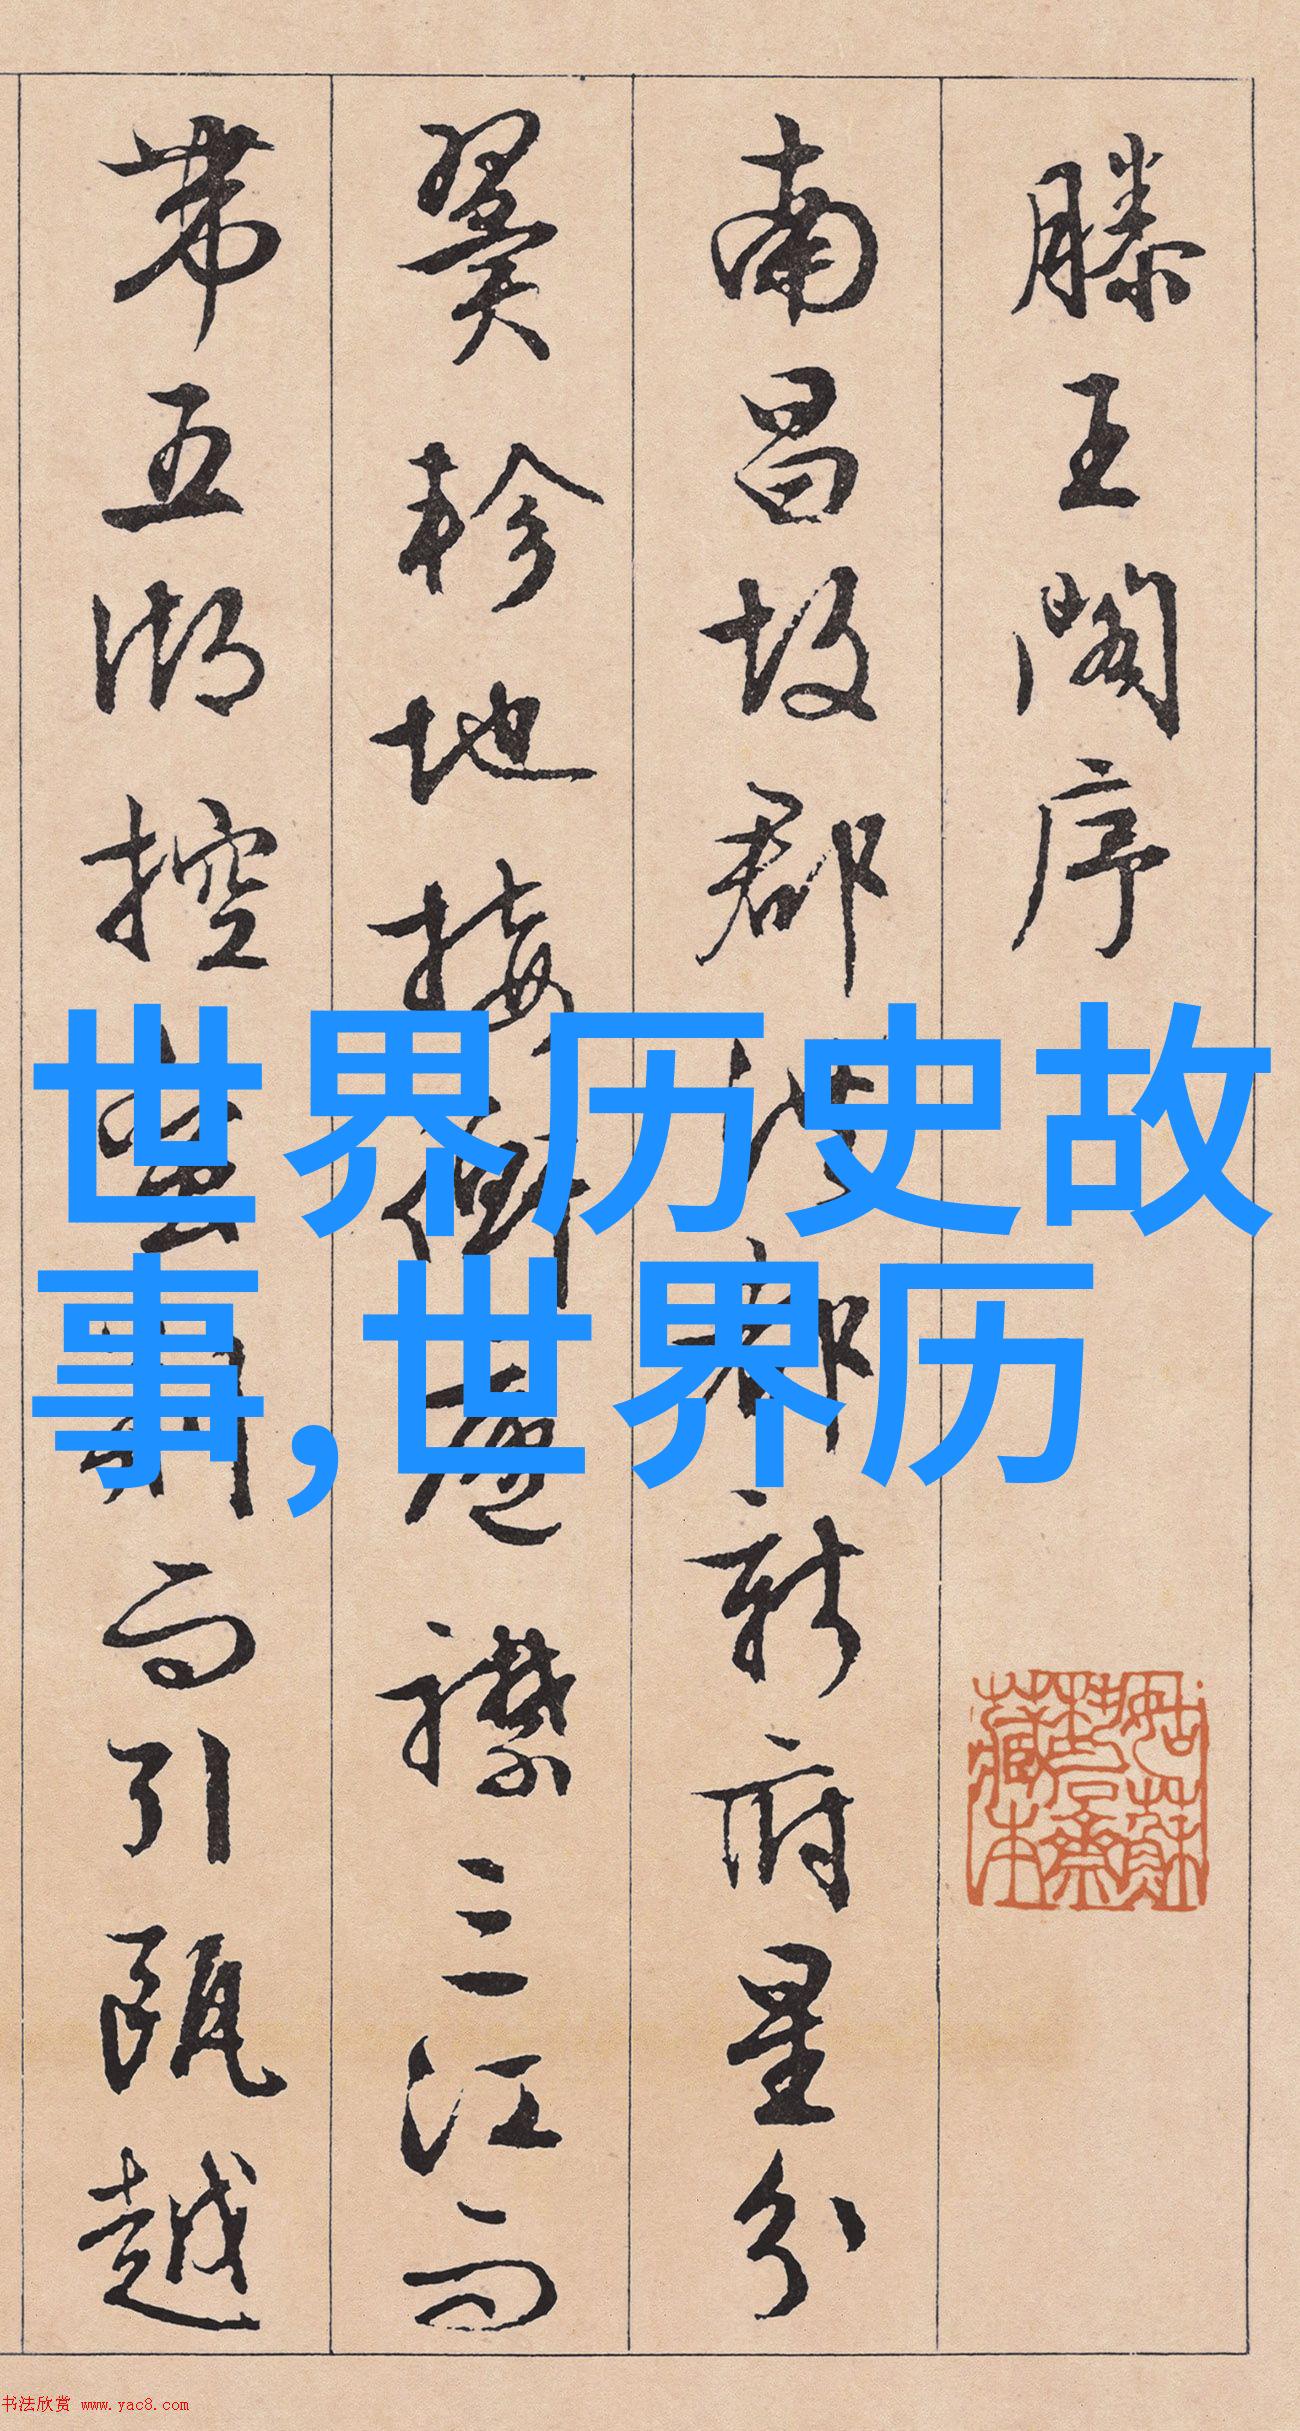 滕王閣序
南昌故郡洪都新府星分
翼軫地接衡廬襟三江而
帶五湖控蠻荆而引甌越
世界历史故
事,世界历
姑蘇
藏本
书法欣赏 www.yac8.com